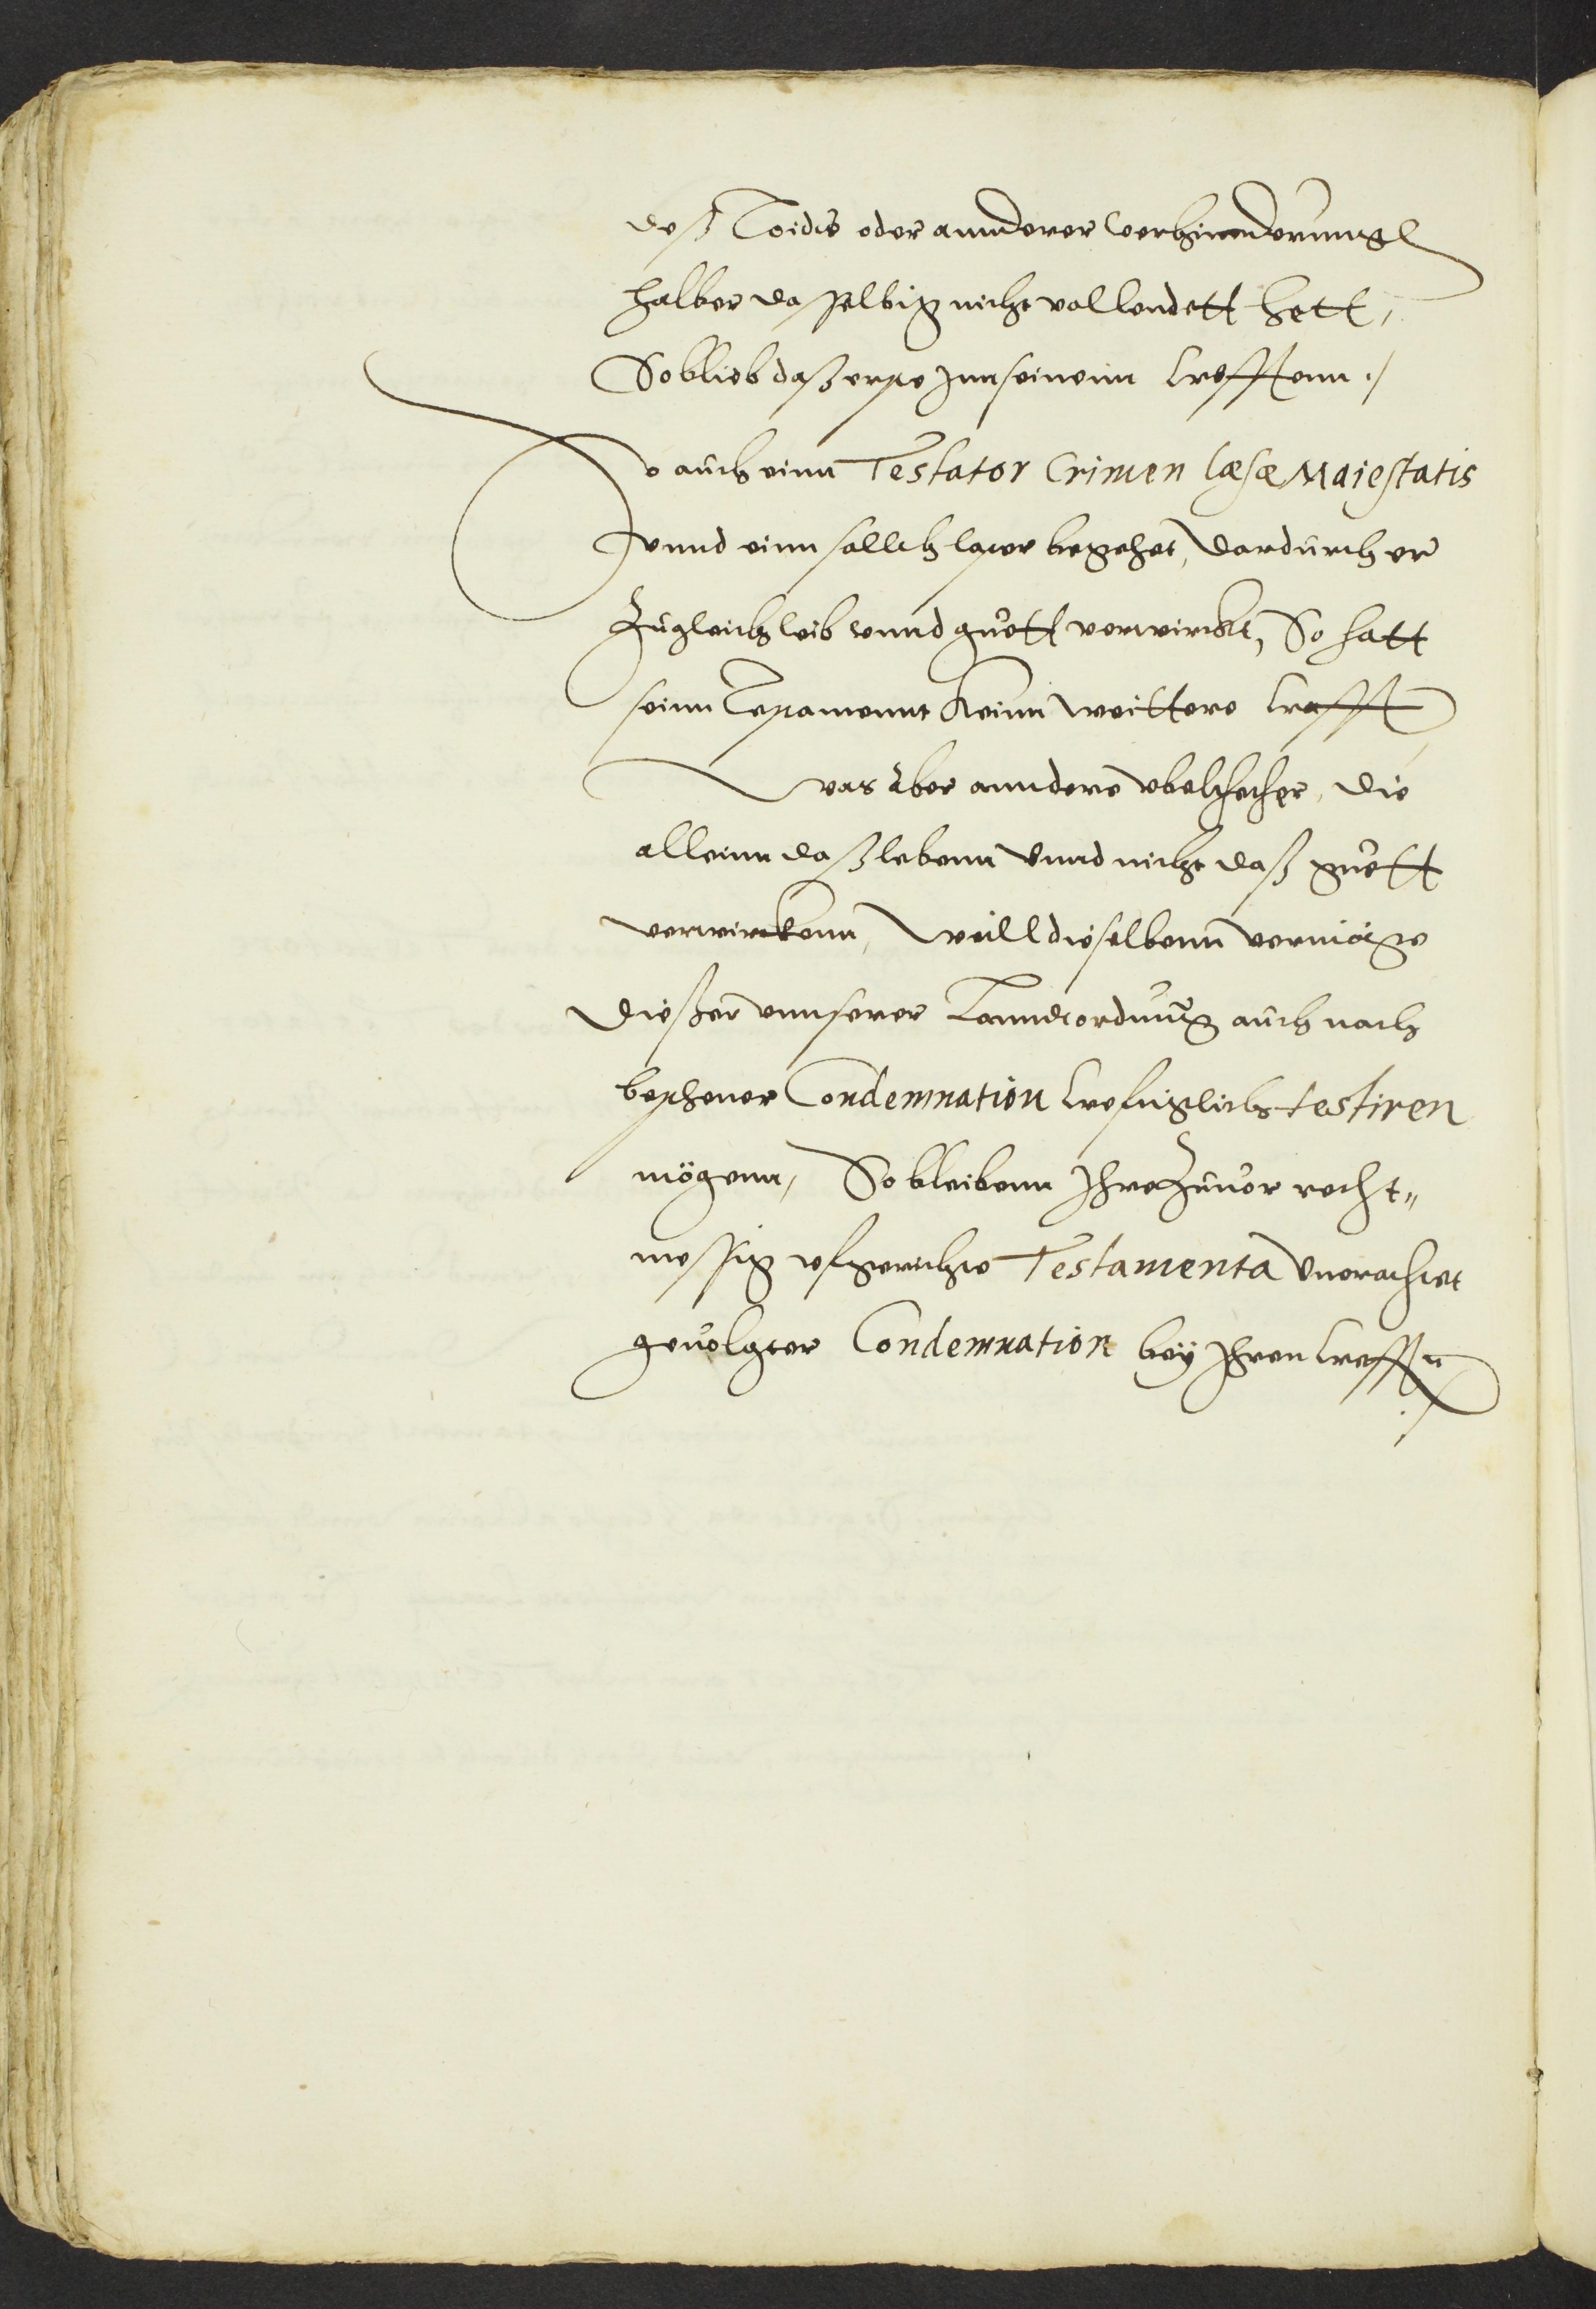 deß Todts oder annderer verhinnderunng
halber dasselbig nicht vollendett hett,
So blieb daß erste Jnn seinenn Crefftenn ./
So auch einn Testator Crimen læsæ Maiestatis
vnnd einn sollch laster begehet, dardurch er
Zugleich leib vnnd guott verwirckt, So hatt
seinn Testamennt Keinn weittere Crafft
Was aber anndere vbelthether, die
alleinn daß lebenn vnnd nicht daß guott
verwirckenn, Weill dieselbenn vermöge
Dießer vnnserer Lanndtordnung auch nach
beschener Condemnation Crefftiglich testiren
mögenn, So bleibenn Jhre Zuuor recht„
messig vfgerichte Testamenta Vnerachtet
geuolgter Condemnation bey Jhren Crefften